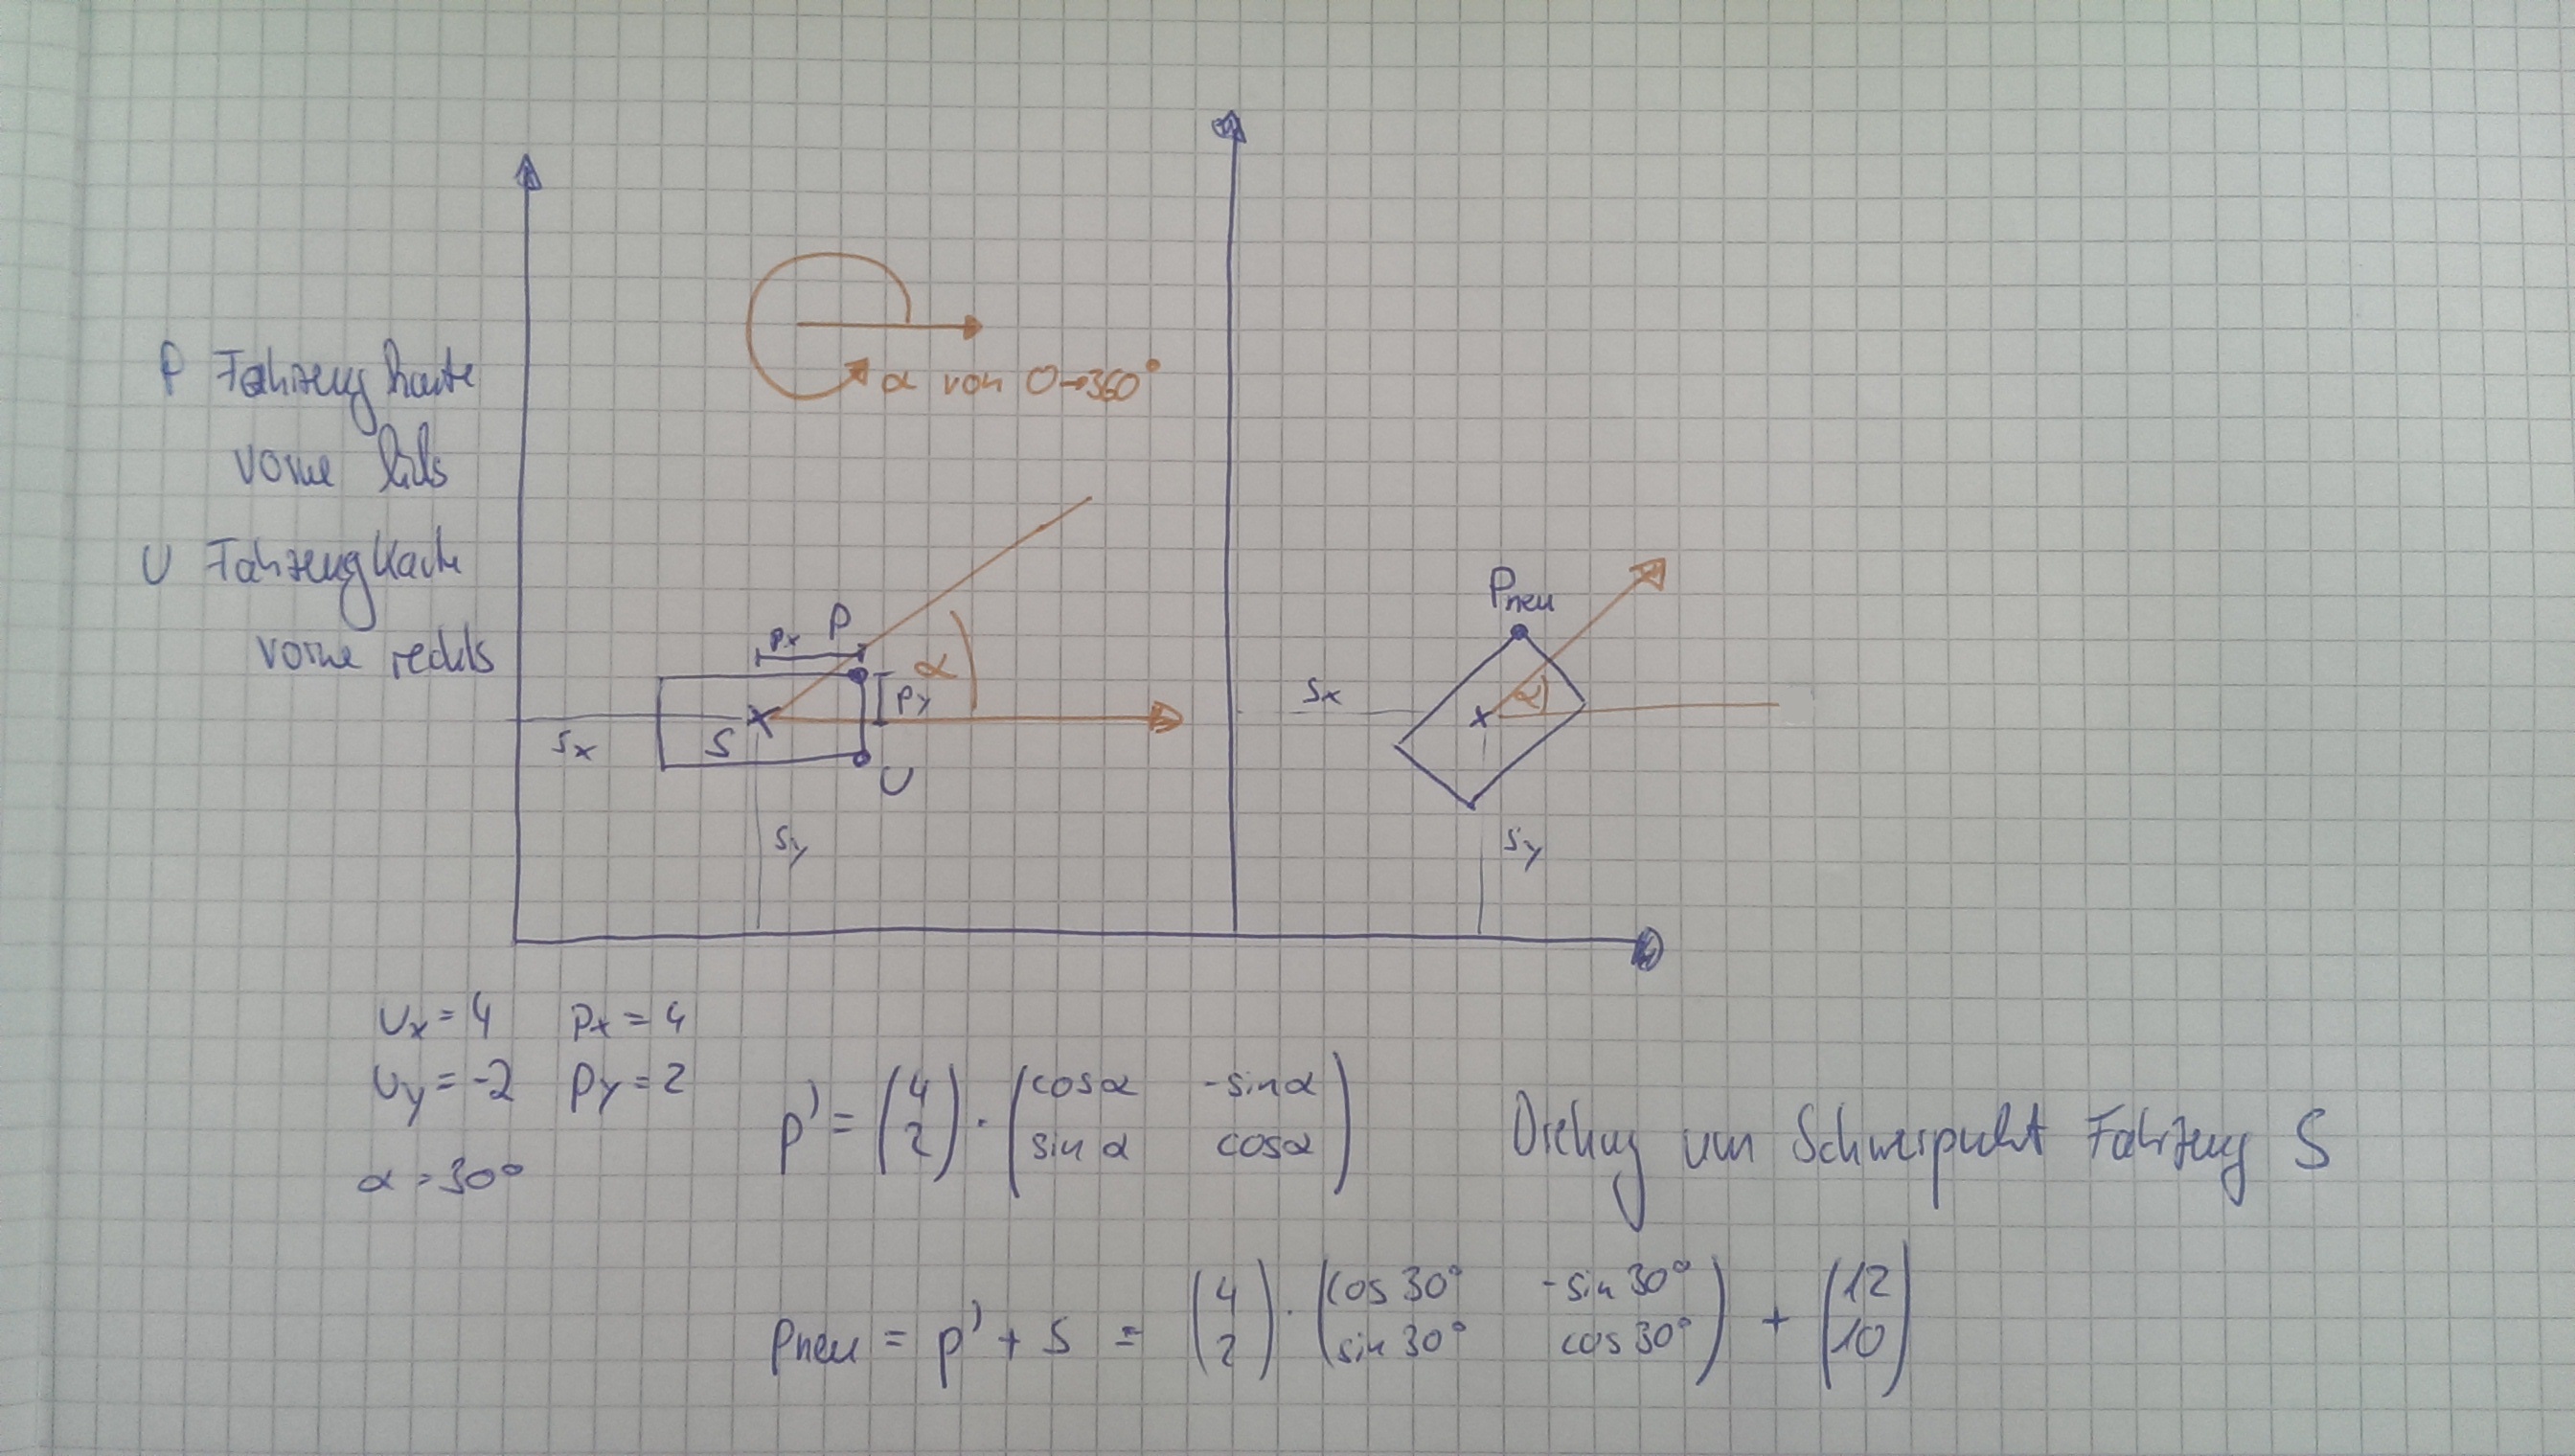 α von 0→360°
P Fahrzeug kante
vorne links
U Fahrzeug Kante
vorne rechts
Px P
α
Py
Sx
S
U
Sy
Pneu
Sx
α
Sy
Ux = 4 Px = 4
Uy = -2 Py = 2
α = 30°
p' = (4 2) · (cos α -sin α
sin α cos α)
Drehung um Schwerpunkt Fahrzeug S
Pneu = p' + S = (4 2) · (cos 30° -sin 30°
sin 30° cos 30°) + (12 10)